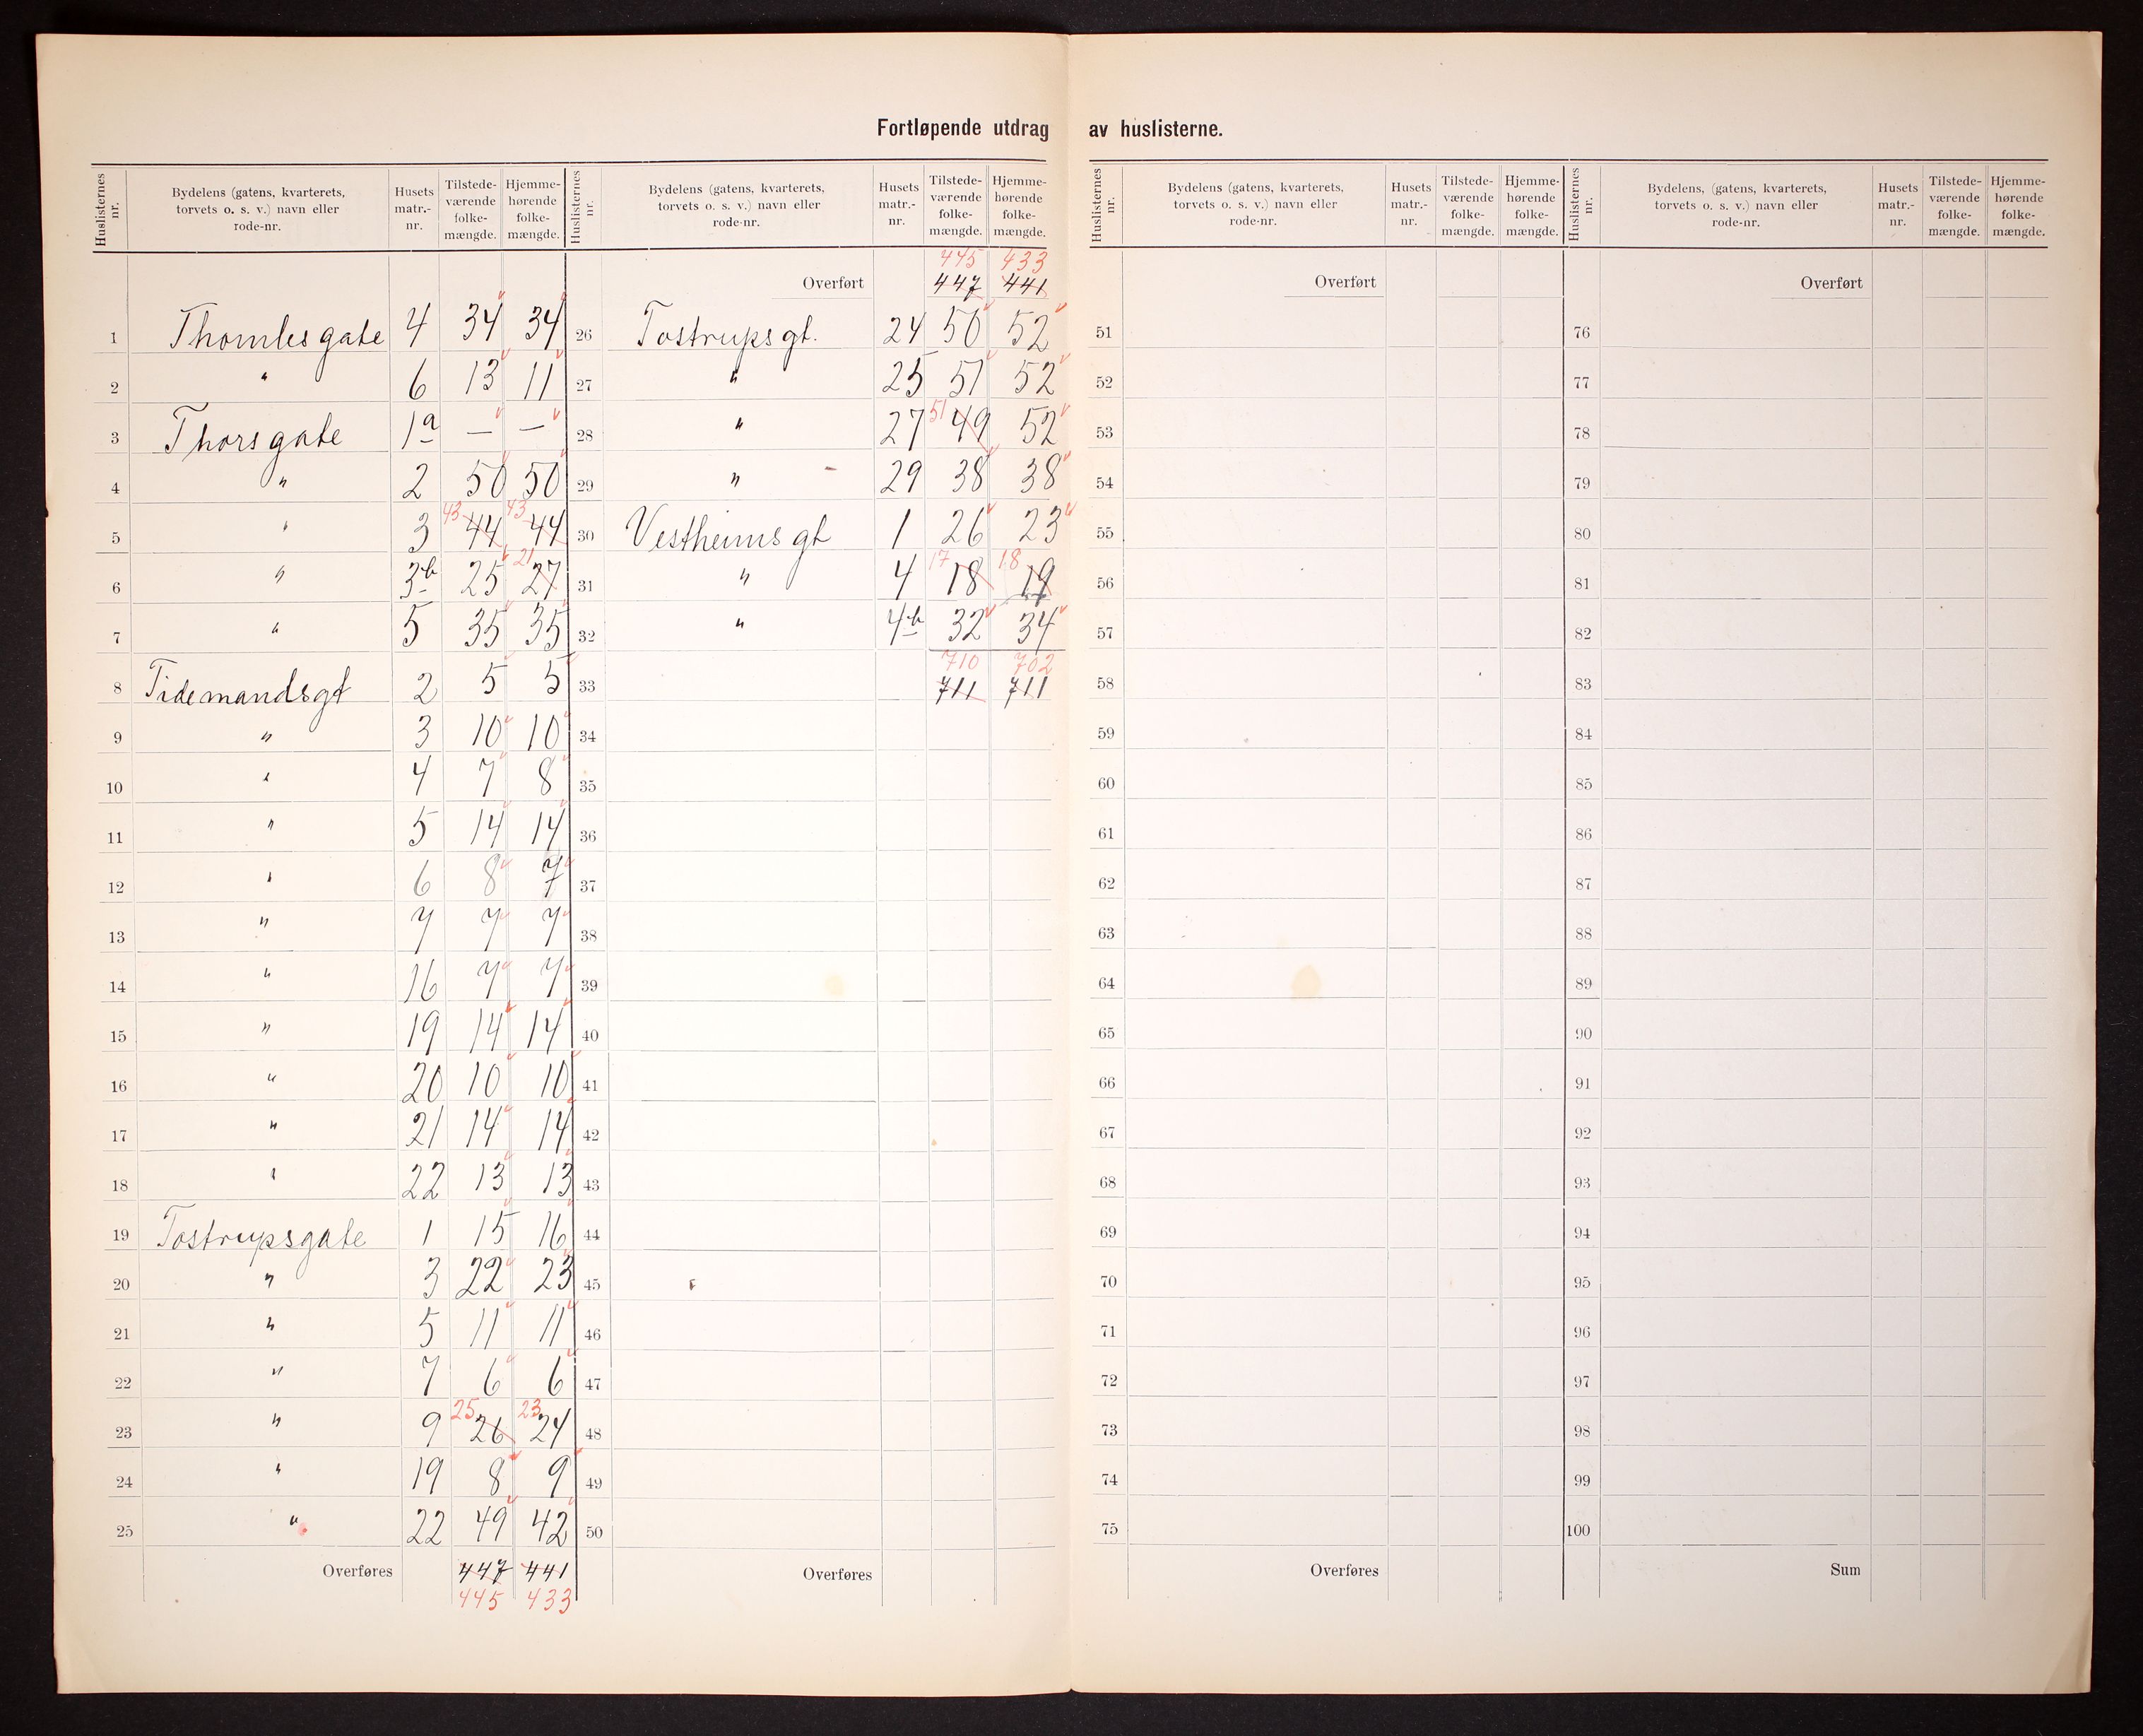 Fortløpende utdrag av huslisterne.
Huslisternes nr. | Bydelens (gatens, kvarterets, torvets o. s. v.) navn eller rode-nr. | Husets matr.-nr. | Tilstede-værende folke-mængde. | Hjemme-hørende folke-mængde.
1 Thomles gate 4 34 34
2 " 6 13 11
3 Thors gate 1a — —
4 " 2 50 50
5 " 3 43 44 43 44
6 " 3b 25 21 27
7 " 5 35 35
8 Tidemandsgt 2 5 5
9 " 3 10 10
10 " 4 7 8
11 " 5 14 14
12 " 6 8 7
13 " 7 7 7
14 " 16 7 7
15 " 19 14 14
16 " 20 10 10
17 " 21 14 14
18 " 22 13 13
19 Tostrupsgate 1 15 16
20 " 3 22 23
21 " 5 11 11
22 " 7 6 6
23 " 9 25 26 23 24
24 " 19 8 9
25 " 22 49 42
Overføres 447 441
445 433
Huslisternes nr. | Bydelens (gatens, kvarterets, torvets o. s. v.) navn eller rode-nr. | Husets matr.-nr. | Tilstede-værende folke-mængde. | Hjemme-hørende folke-mængde.
445 433
Overført 447 441
26 Tostrups gt. 24 50 52
27 " 25 51 52
28 " 27 51 49 52
29 " 29 38 38
30 Vestheims gt 1 26 23
31 " 4 17 18 18 19
32 " 4b 32 34
710 702
33 711 711
34
35
36
37
38
39
40
41
42
43
44
45
46
47
48
49
50
Overføres
Huslisternes nr. | Bydelens (gatens, kvarterets, torvets o. s. v.) navn eller rode-nr. | Husets matr.-nr. | Tilstede-værende folke-mængde. | Hjemme-hørende folke-mængde.
Overført
51
52
53
54
55
56
57
58
59
60
61
62
63
64
65
66
67
68
69
70
71
72
73
74
75
Overføres
Huslisternes nr. | Bydelens, (gatens, kvarterets, torvets o. s. v.) navn eller rode-nr. | Husets matr.-nr. | Tilstede-værende folke-mængde. | Hjemme-hørende folke-mængde.
Overført
76
77
78
79
80
81
82
83
84
85
86
87
88
89
90
91
92
93
94
95
96
97
98
99
100
Sum